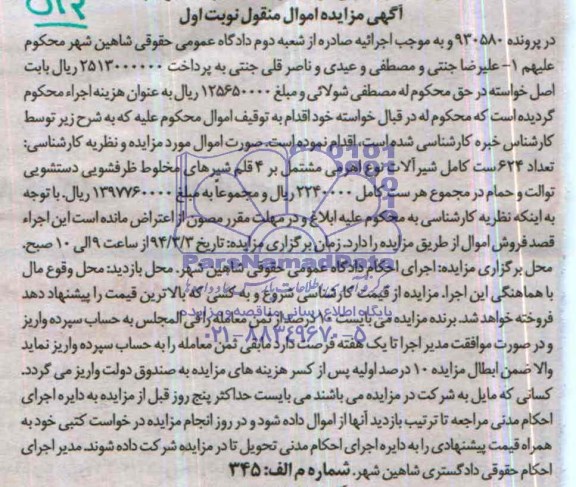 آگهی مزایده اموال منقول نوبت اول
در پرونده ۹۳۰۵۸۰ و به موجب اجرائیه صادره از شعبه دوم دادگاه عمومی حقوقی شاهین شهر محکوم
علیهم ۱- علیرضا جنتی و مصطفی و عیدی و ناصر قلی جنتی به پرداخت ۲۵۱۳۰۰۰۰۰۰ ریال بابت
اصل خواسته در حق محکوم له مصطفی شولائی و مبلغ ۱۲۵۶۵۰۰۰۰ ریال به عنوان هزینه اجراء محکوم
گردیده است که محکوم له در قبال خواسته خود اقدام به توقیف اموال محکوم علیه که به شرح زیر توسط
کارشناس خبره کارشناسی شده است، اقدام نموده است. صورت اموال مورد مزایده و نظریه کارشناسی:
تعداد ۶۲۴ ست کامل شیرآلات نوع اهرمی مشتمل بر ۴ قلم شیرهای مخلوط ظرفشویی دستشویی
توالت و حمام در مجموع هر ست کامل ۲۲۴۰۰۰۰ ریال و مجموعاً به مبلغ ۱۳۹۷۷۶۰۰۰۰ ریال. با توجه
به اینکه نظریه کارشناسی به محکوم علیه ابلاغ و در مهلت مقرر مصون از اعتراض مانده است این اجراء
قصد فروش اموال از طریق مزایده را دارد. زمان برگزاری مزایده: تاریخ ۹۴/۳/۳ از ساعت ۹ الی ۱۰ صبح.
محل برگزاری مزایده: اجرای احکام دادگاه عمومی حقوقی شاهین شهر. محل بازدید: محل وقوع مال
با هماهنگی این اجرا. مزایده از قیمت کارشناسی شروع و به کسی که بالاترین قیمت را پیشنهاد دهد
فروخته خواهد شد. برنده مزایده می بایست ۱۰ درصد از ثمن معامله را فی المجلس به حساب سپرده واریز
و در صورت موافقت مدیر اجرا تا یک هفته فرصت دارد مابقی ثمن معامله را به حساب سپرده واریز نماید
والا ضمن ابطال مزایده ۱۰ درصد اولیه پس از کسر هزینه های مزایده به صندوق دولت واریز می گردد.
کسانی که مایل به شرکت در مزایده می باشند می بایست حداکثر پنج روز قبل از مزایده به دایره اجرای
احکام مدنی مراجعه تا ترتیب بازدید آنها از اموال داده شود و در روز انجام مزایده در خواست کتبی خود به
همراه قیمت پیشنهادی را به دایره اجرای احکام مدنی تحویل تا در مزایده شرکت داده شوند. مدیر اجرای
احکام حقوقی دادگستری شاهین شهر. شماره م الف: ۳۴۵
ParsNamadData
پایگاه اطلاع رسانی مناقصه و مزایده
۰۲۱-۸۸۳۴۹۶۷۰-۵